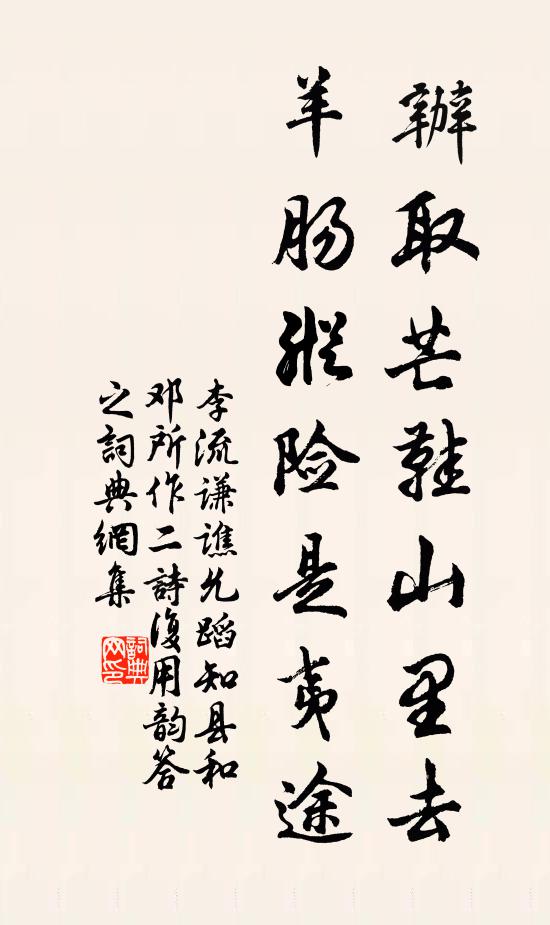 辦取芒鞋山里去
羊肠縱险是夷途
李流谦谯允蹈知县和
邓所作二詩復用韵答
之詞典網集
詞典
网印